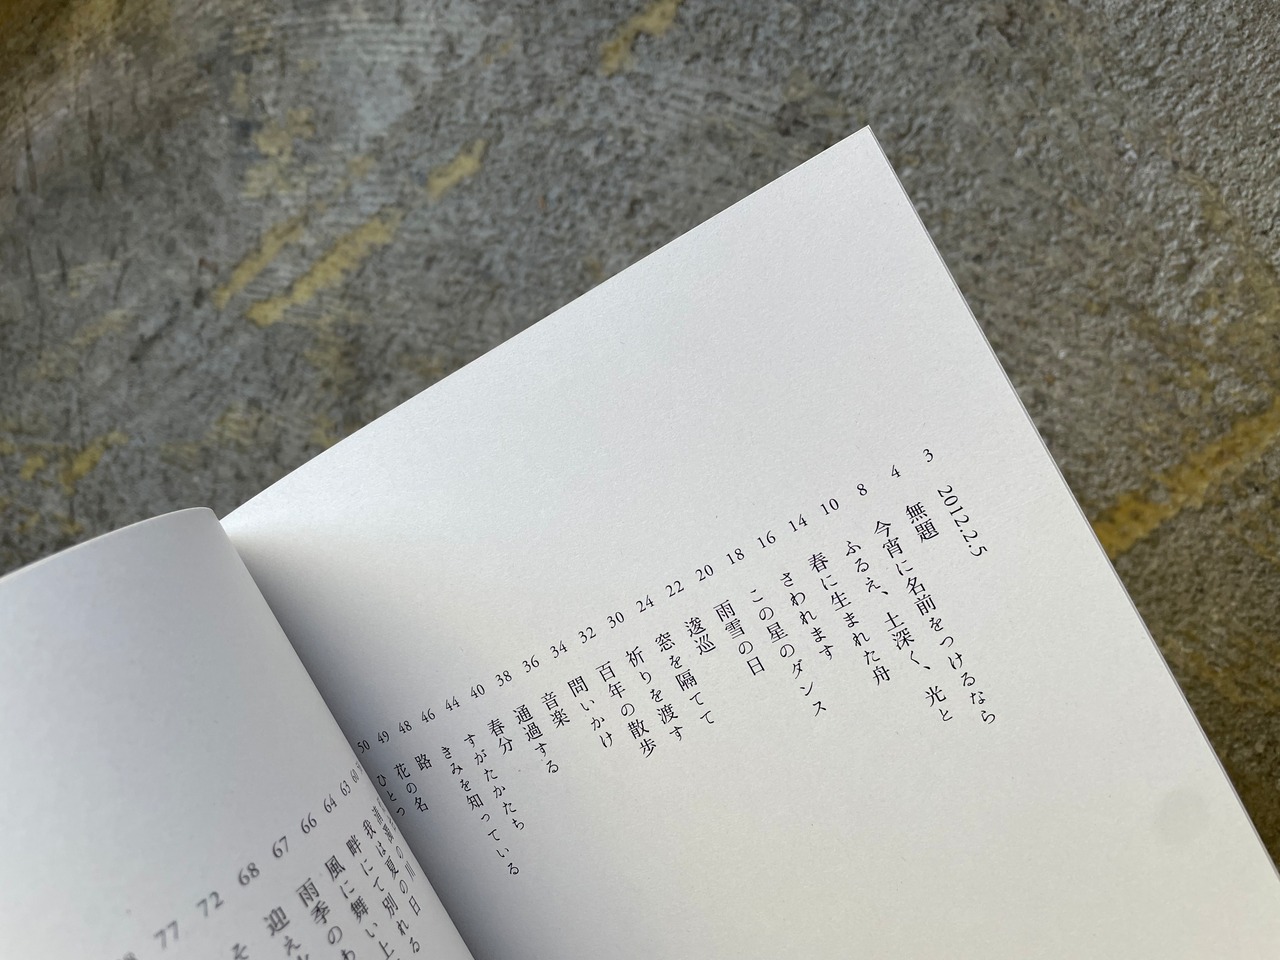 3 2012.2.5
4 無題
8 今宵に名前をつけるなら
10 ふるえ、土深く、光と
14 春に生まれた舟
16 さわれます
18 この星のダンス
20 雨雪の日
22 逡巡
24 窓を隔てて
30 祈りを渡す
32 百年の散歩
34 問いかけ
36 音楽
38 通過する
40 春分
44 すがたかたち
46 きみを知っている
48 路
49 花の名
50 ひとつ
60 の川
63 我は夏の日
64 畔にて別れる
66 風に舞い上
67 雨季のわ
68 迎え
72 そ
77